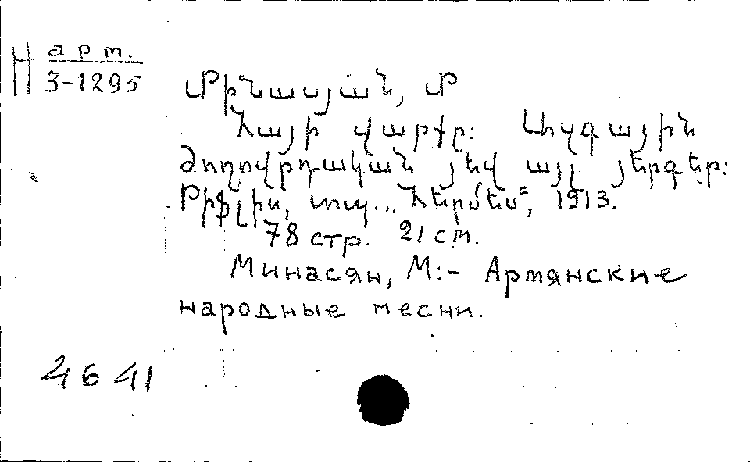 Н арт.
3-1295
Մինասյան, Մ
Հայի վարդը: Ազգային
ժողովրդական յեվ այլ յերգեր:
Թիֆլիս, տպ. „Հերմես“, 1913.
78 стр. 21 см.
Минасян, М:- Армянские
народные песни.
4641